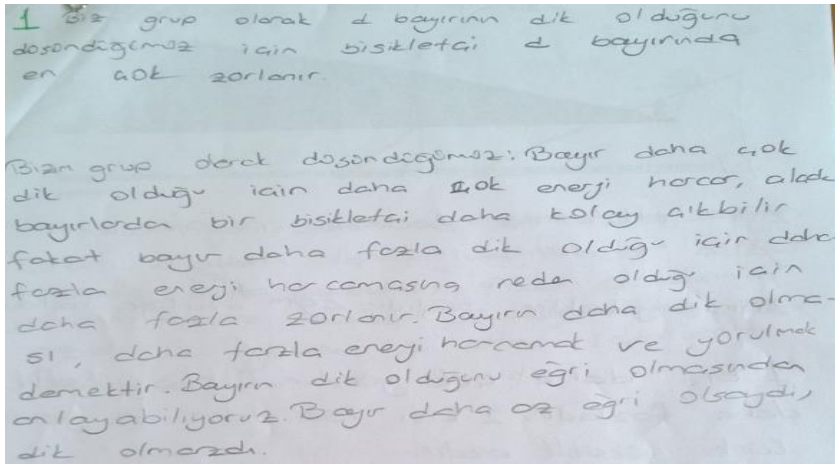 1 Biz grup olarak d bayırının dik olduğunu
düşöndüğümüz için bisikletçi d bayırında
en çok zorlanır.
Bizm grup olarak düşöndüğümüz: Bayır daha çok
dik olduğu için daha çok energi harcar, alçak
bayırlardan bir bisikletçi daha kolay çıkbilir
fakat bayır daha fazla dik olduğu için daha
fazla enerji harcamasına neden olduğ için
daha fazla zorlanır. Bayırın daha dik olma-
sı, daha fazla enerji harcamak ve yorulmak
demektir. Bayırın dik olduğunu eğri olmasından
anlayabiliyoruz. Bayır daha az eğri olsaydı,
dik olmazdı.